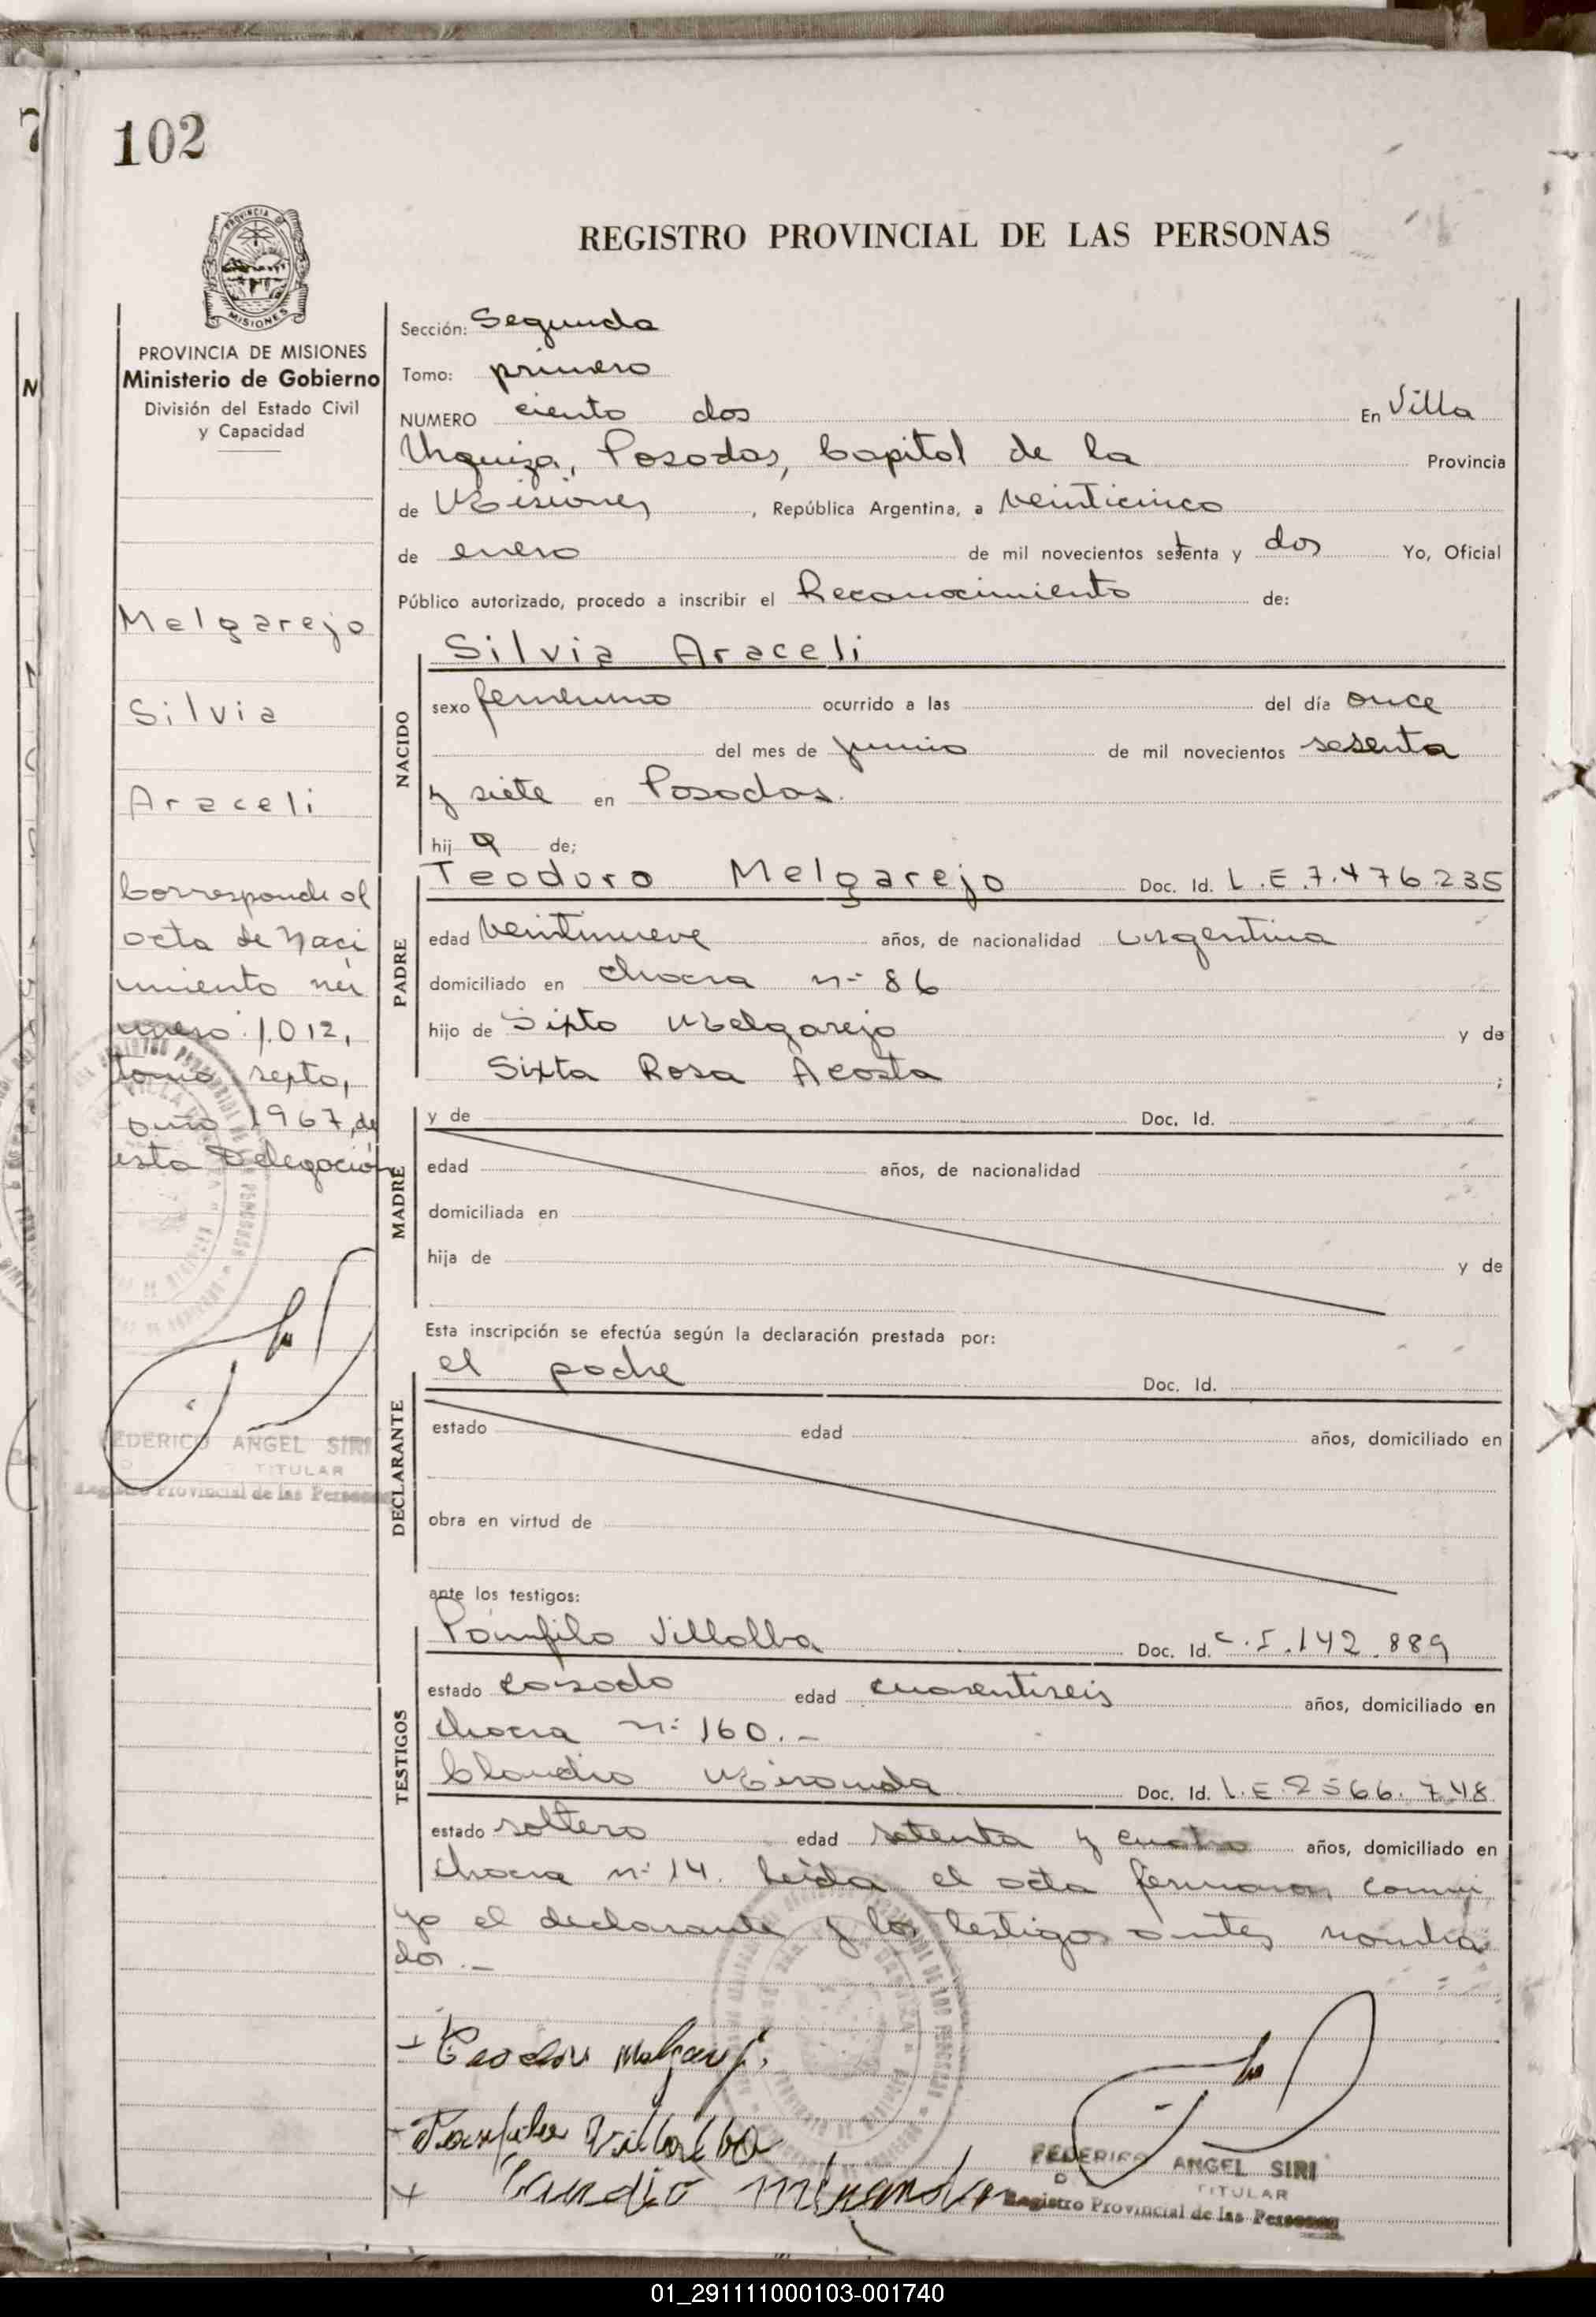 102
REGISTRO PROVINCIAL DE LAS PERSONAS
PROVINCIA DE
MISIONES
PROVINCIA DE MISIONES
Ministerio de Gobierno
División del Estado Civil
y Capacidad
Melgarejo
Silvia
Araceli
Corresponde al
acta de naci
miento nú
mero 1.012,
tomo septo,
año 1967, de
esta Delegación
FEDERICO ANGEL SIRI
TITULAR
Registro Provincial de las Personas
Sección: Segunda
Tomo: primero
NUMERO ciento dos En Villa
Urquiza, Posadas, Capital de la Provincia
de Misiones, República Argentina, a veinticinco
de enero de mil novecientos setenta y dos Yo, Oficial
Público autorizado, procedo a inscribir el Reconocimiento de:
NACIDO
Silvia Araceli
sexo femenino ocurrido a las del día once
del mes de junio de mil novecientos sesenta
y siete en Posadas.
hija de;
PADRE
Teodoro Melgarejo Doc. Id. L.E.7.476.235
edad veintinueve años, de nacionalidad argentina
domiciliado en chacra nº 86
hijo de Sixto Melgarejo y de
Sixta Rosa Acosta ;
MADRE
y de Doc. Id.
edad años, de nacionalidad
domiciliada en
hija de y de
Esta inscripción se efectúa según la declaración prestada por:
DECLARANTE
el padre Doc. Id.
estado edad años, domiciliado en
obra en virtud de
ante los testigos:
TESTIGOS
Pánfilo Villalba Doc. Id. C.I.142.889
estado casado edad cuarentiseis años, domiciliado en
chacra nº 160.-
Claudio Miranda Doc. Id. L.E.2566.748
estado soltero edad setenta y cuatro años, domiciliado en
chacra nº 14. Leída el acta firmaron conmi
go el declarante y los testigos antes nombra
dos.-
Teodoro Melgarejo
Panfilo Villalba
Claudio Miranda
FEDERICO ANGEL SIRI
TITULAR
Registro Provincial de las Personas
01_291111000103-001740